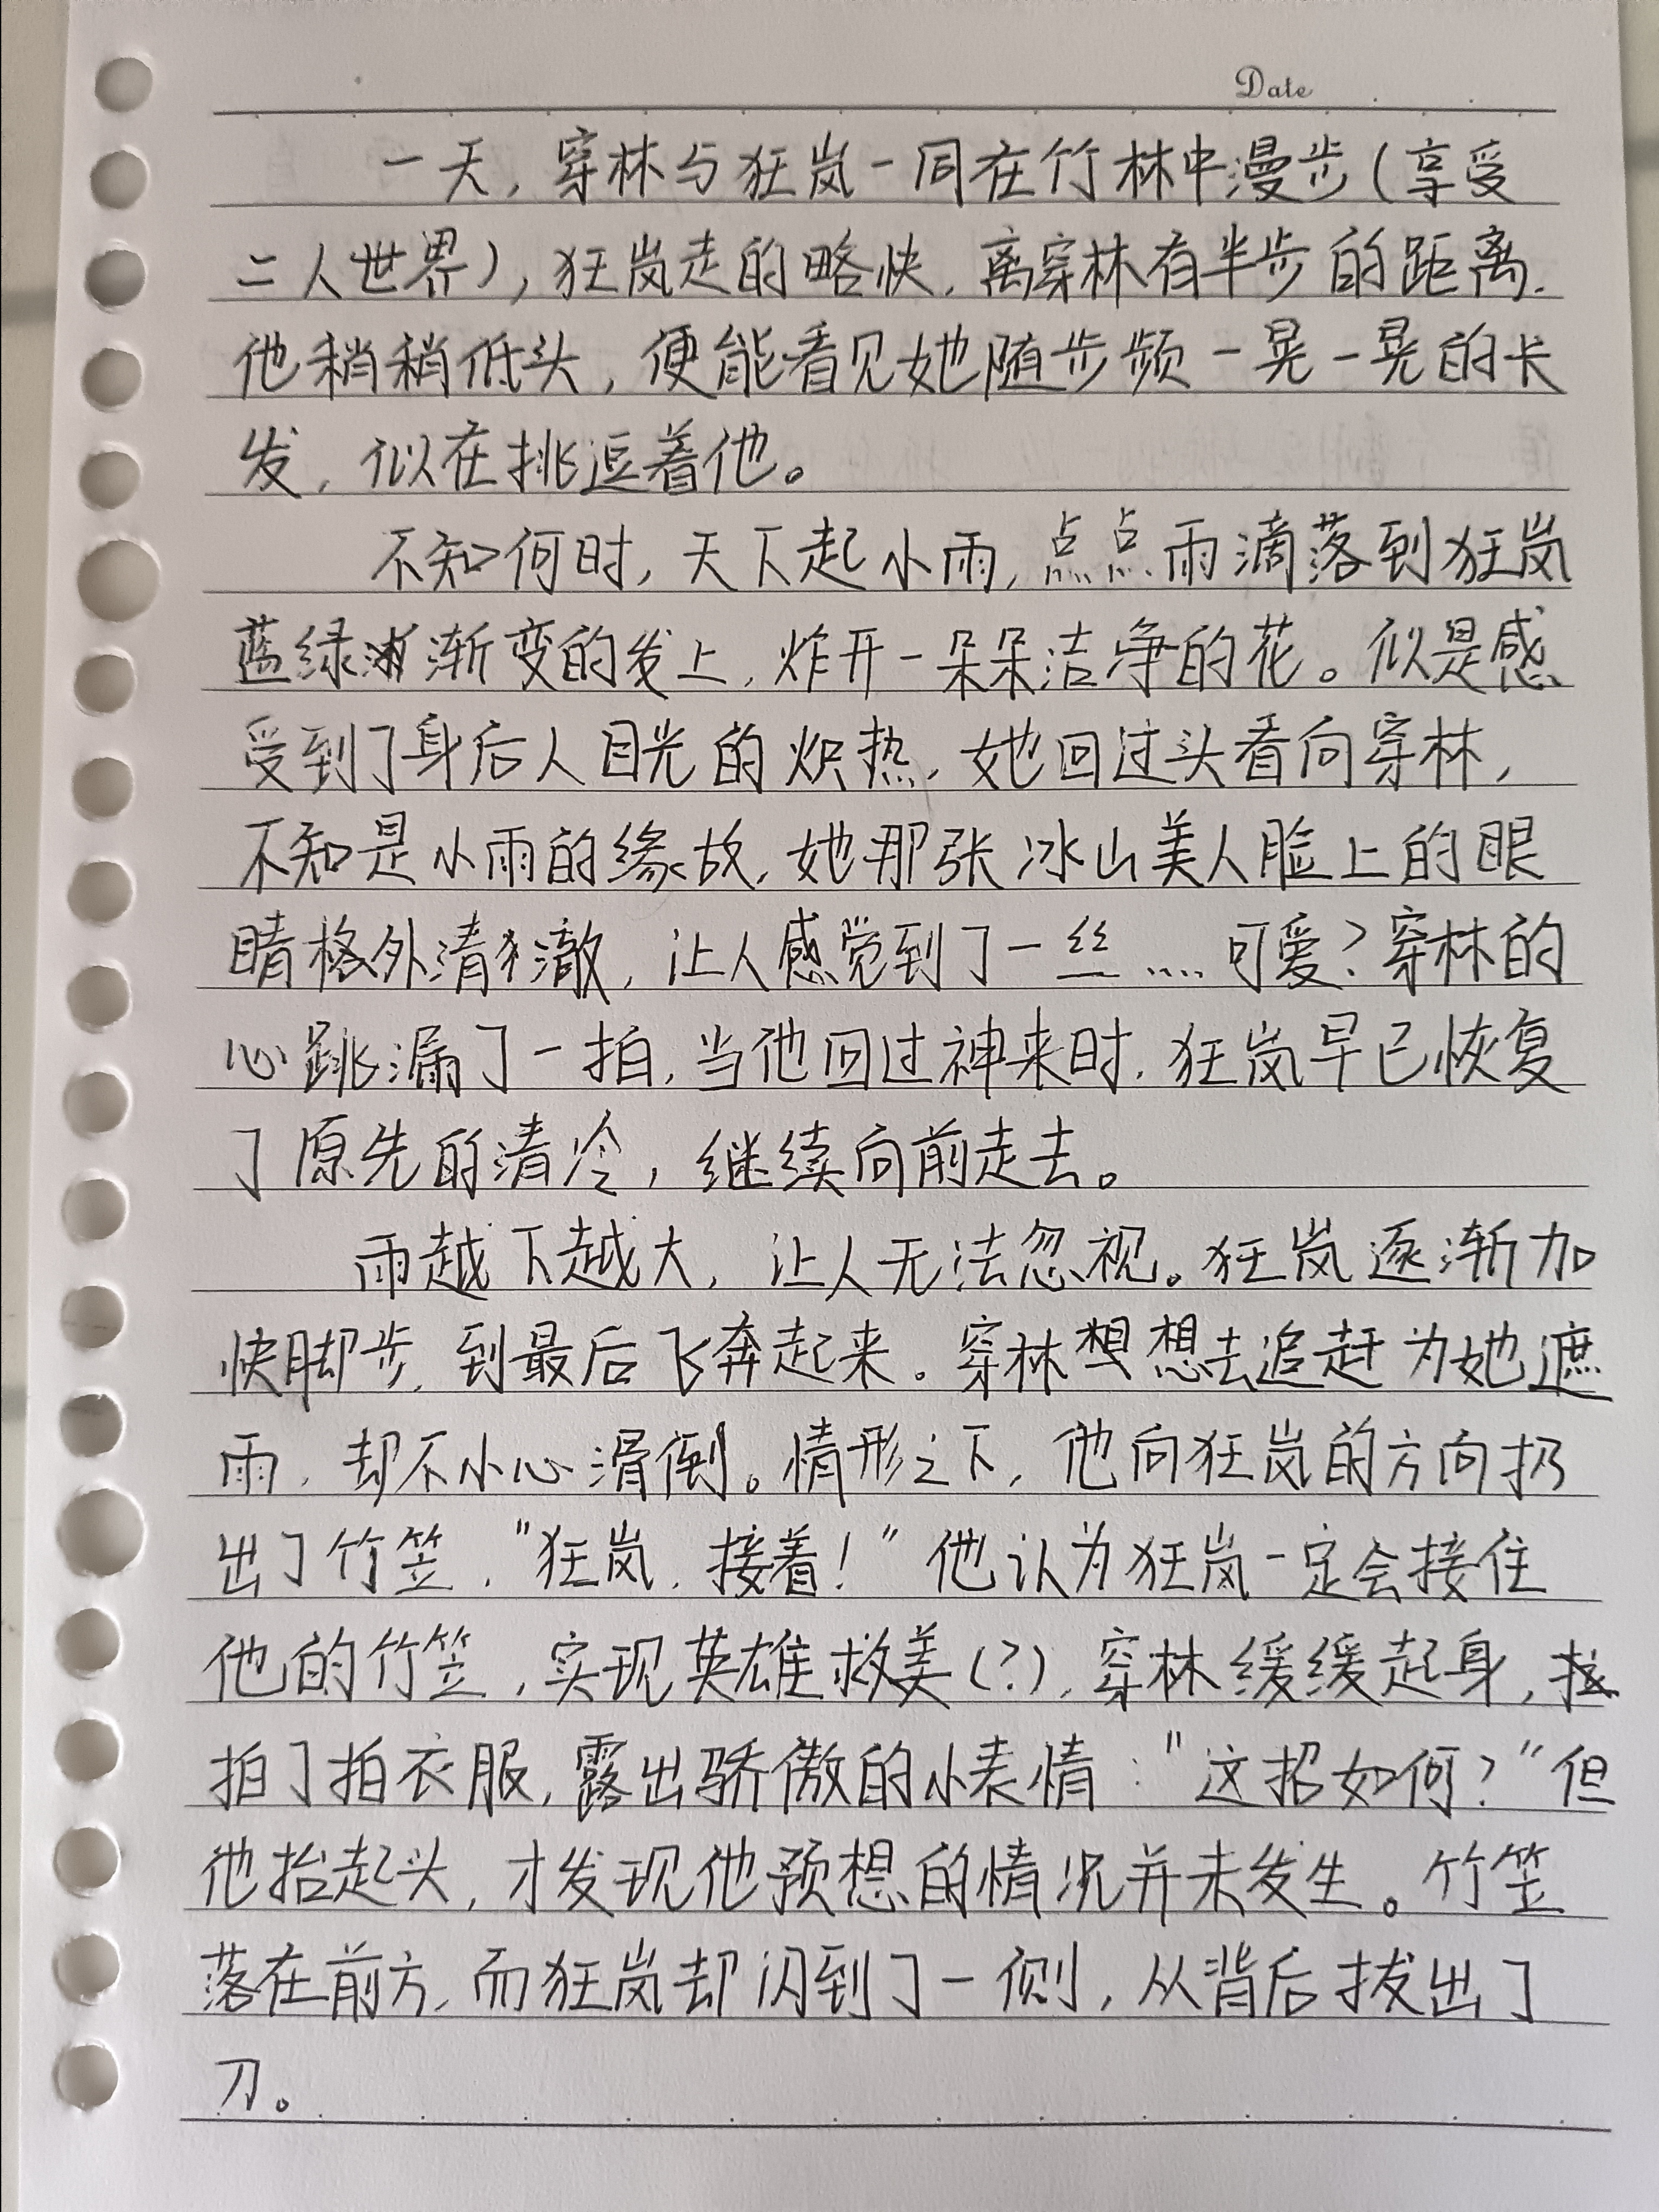 Date
一天，穿林与狂岚一同在竹林中漫步（享受
二人世界），狂岚走的略快，离穿林有半步的距离.
他稍稍低头，便能看见她随步频一晃一晃的长
发，似在挑逗着他。
不知何时，天下起小雨，点点雨滴落到狂岚
蓝绿渐变的发上，炸开一朵朵洁净的花。似是感
受到了身后人目光的炽热，她回过头看向穿林，
不知是小雨的缘故，她那张冰山美人脸上的眼
睛格外清澈，让人感觉到了一丝……可爱？穿林的
心跳漏了一拍，当他回过神来时，狂岚早已恢复
了原先的清冷，继续向前走去。
雨越下越大，让人无法忽视。狂岚逐渐加
快脚步，到最后飞奔起来。穿林想去追赶为她遮
雨，却不小心滑倒。情形之下，他向狂岚的方向扔
出了竹笠，"狂岚，接着！"他认为狂岚一定会接住
他的竹笠，实现英雄救美（？），穿林缓缓起身，
拍了拍衣服，露出骄傲的小表情："这招如何？"但
他抬起头，才发现他预想的情况并未发生。竹笠
落在前方，而狂岚却闪到了一侧，从背后拔出了
刀。